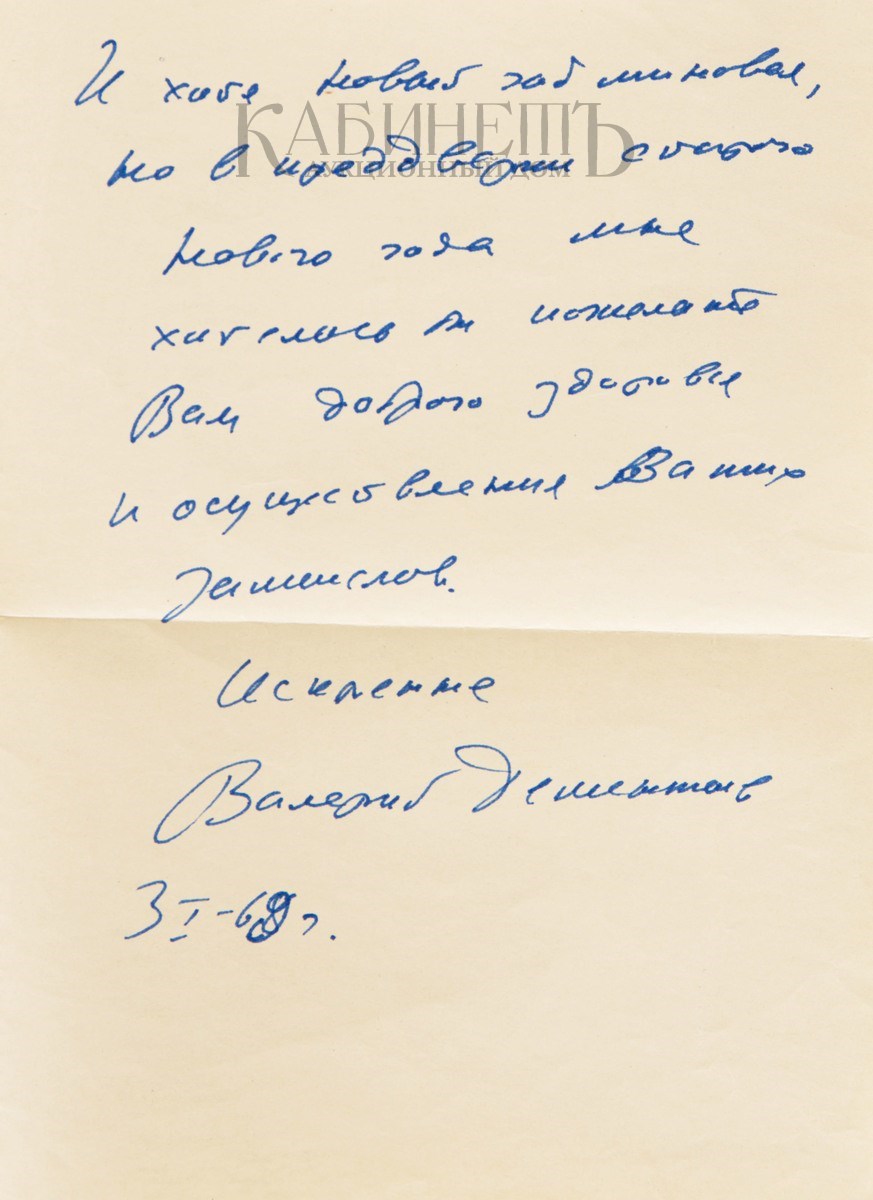 И хотя Новый год миновал,
КАБИНЕТЪ
АУКЦИОННЫЙ ДОМ
но в преддверии старого
Нового года мне
хотелось бы пожелать
Вам доброго здоровья
и осуществления Ваших
замыслов.
Искренне
Валерий Дементьев
3 I-69 г.